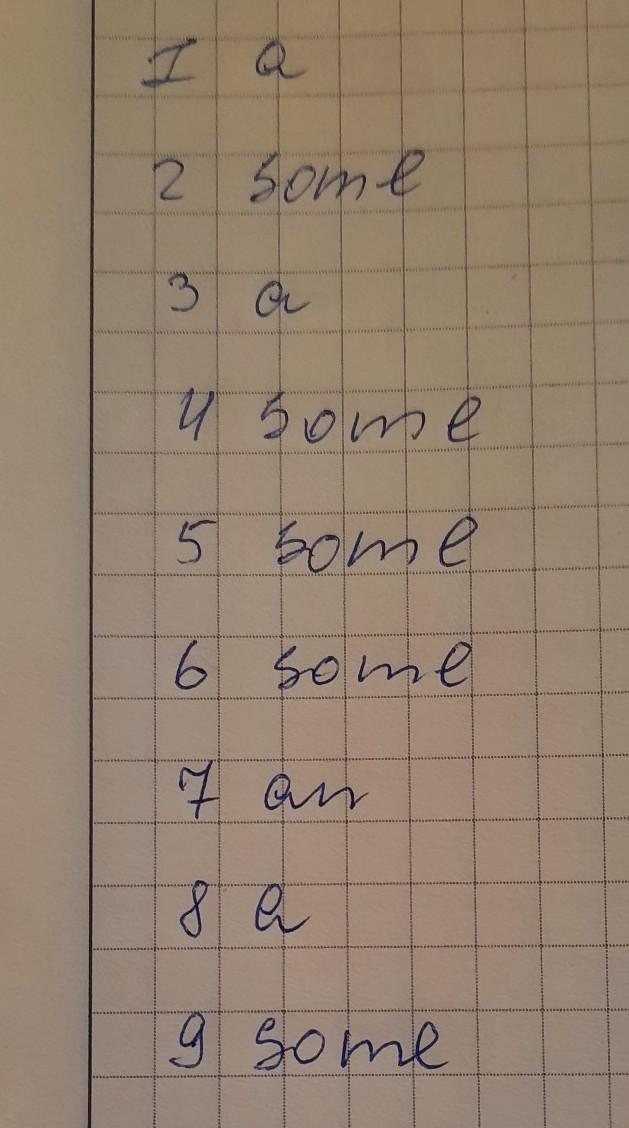 1 a
2 some
3 a
4 some
5 some
6 some
7 an
8 a
9 some